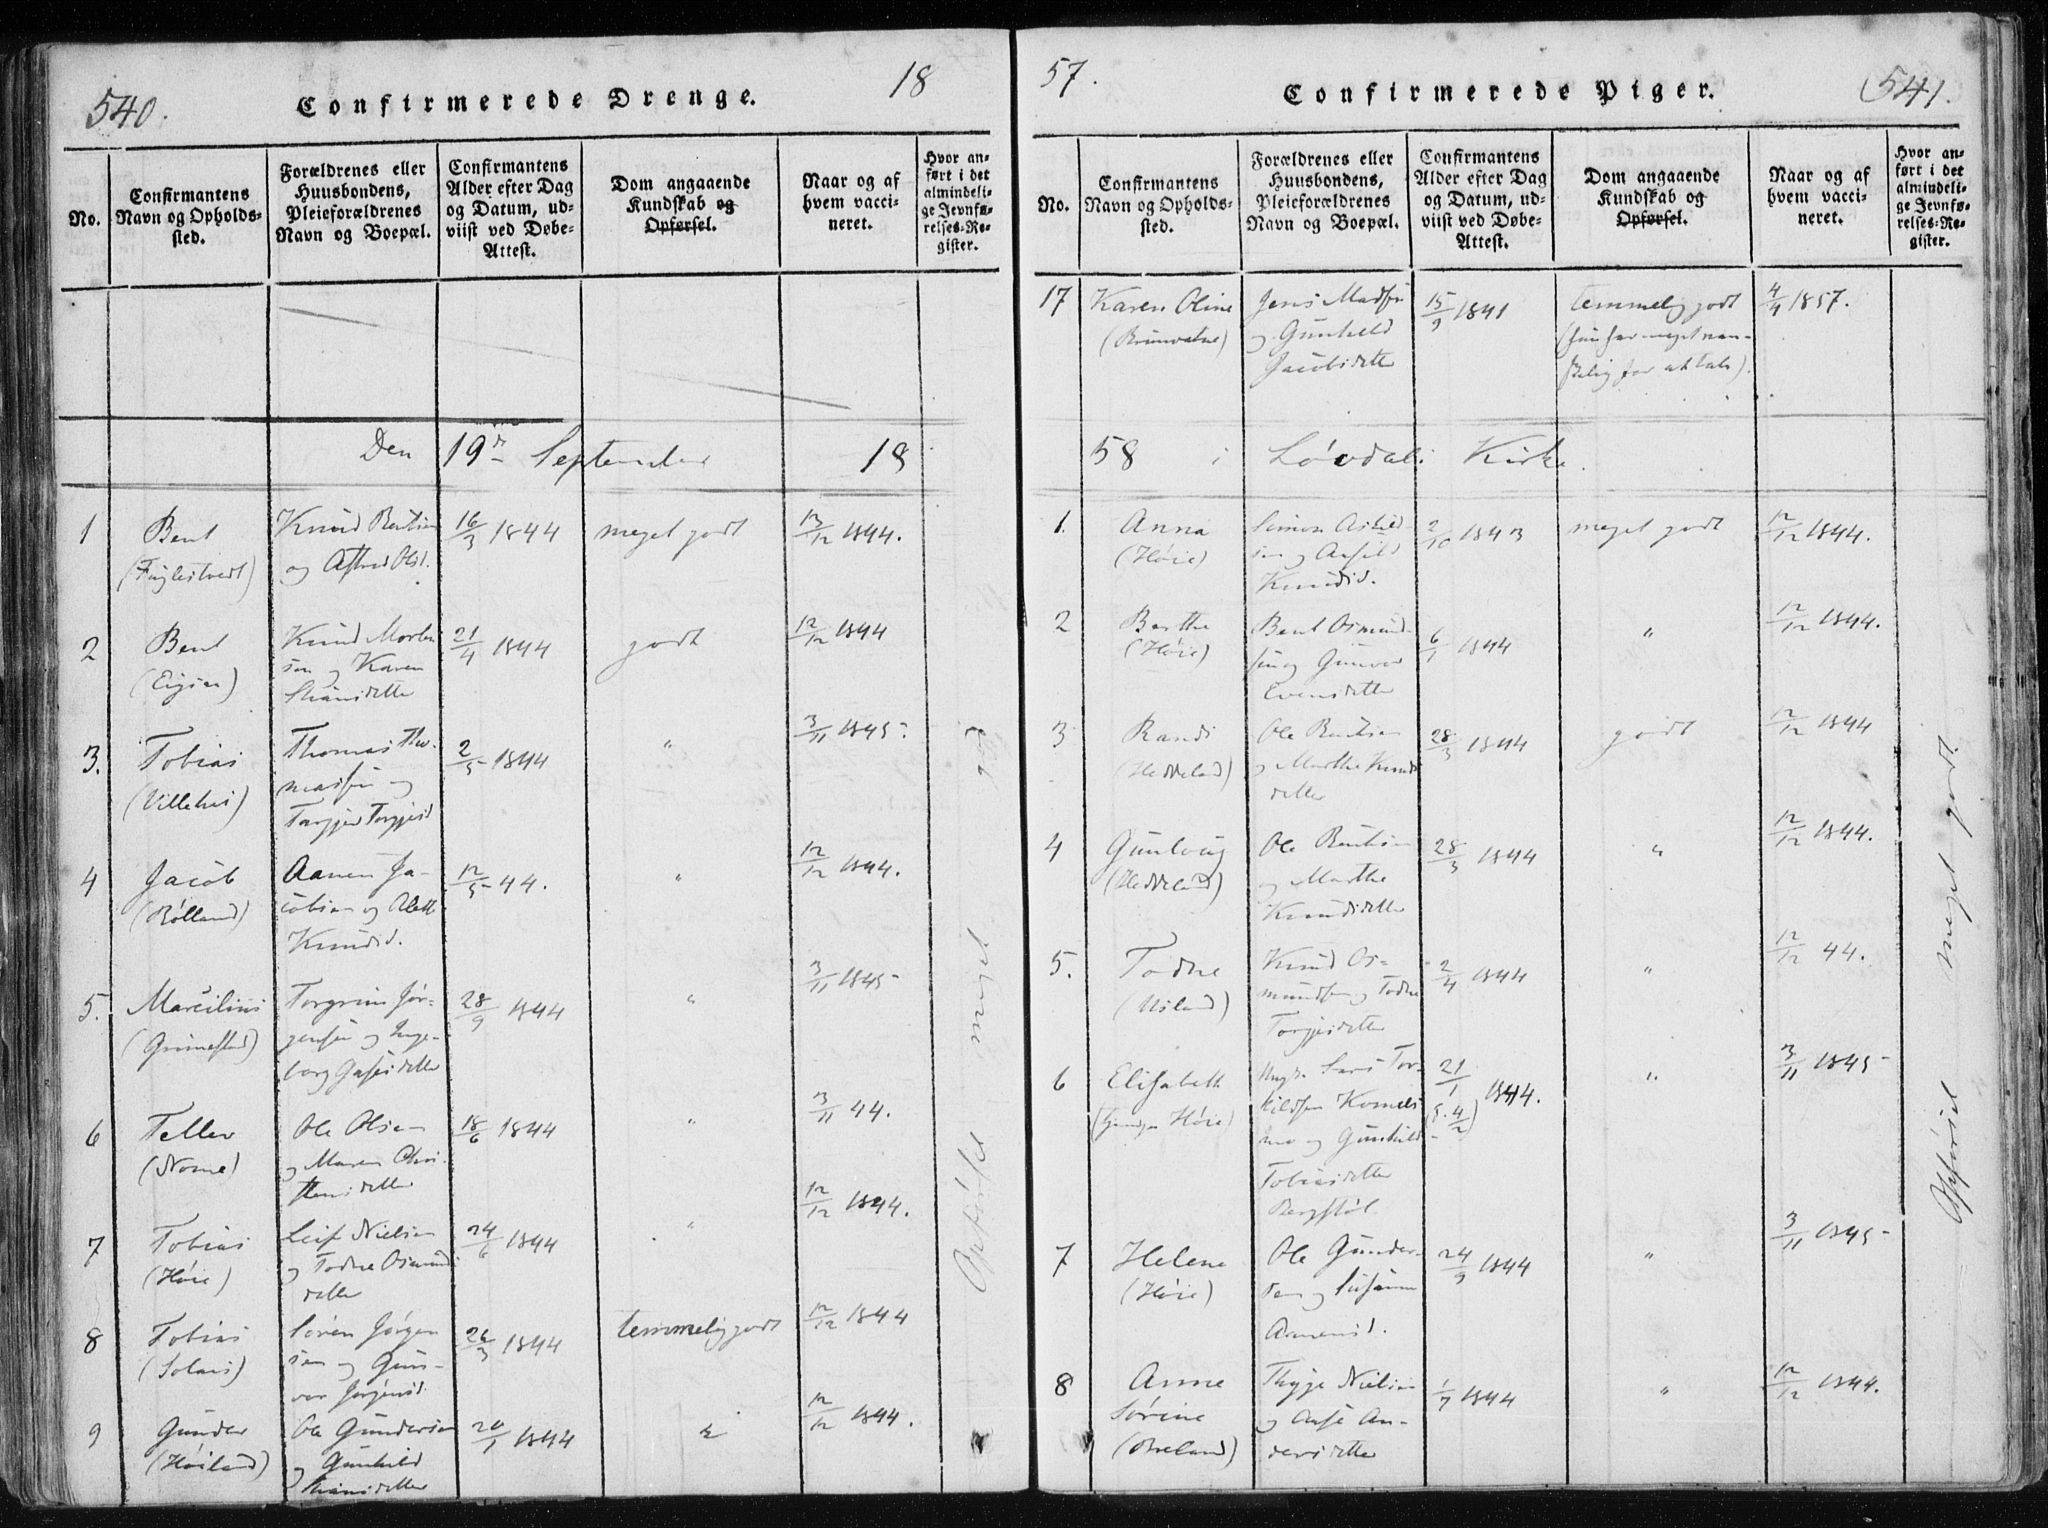 540.
Confirmerede Drenge.
18
No.
Confirmantens
Navn og Opholds-
sted.
Forældrenes eller
Huusbondens,
Pleieforældrenes
Navn og Boepæl.
Confirmantens
Alder efter Dag
og Datum, ud-
viist ved Døbe-
Attest.
Dom angaaende
Kundskab og
Opførsel.
Naar og af
hvem vacci-
neret.
Hvor an-
ført i det
almindeli-
ge Jevnfø-
relses-Re-
gister.
Den 19de September 18
1
Bent
(Fuglestvedt)
Knud Bentsen
og Astred Olsd.
16/3 1844
meget godt
12/12 1844.
2
Bent
Knud Morten
sen og Karen
21/4 1844
godt
12/12 1844
3.
Tobias
Thomas Tho-
massen og
2/5 1844
"
3/11 1845
4
Jacob
Aanen Ja-
cobsen og
Knudsd.
12/5 44.
"
12/12 1844.
5.
Marcilius
(Grimestad)
Torgrim Jør-
gensen og Inge-
borg
28/9 1844
"
3/11 1845
6
Tellev
(Nome)
Ole Olsen
og Maren Chri-
stensdatter
18/6 1844
"
3/11 44.
7
Tobias
(Høie)
Leif Nielsen
og Todne Osmunds
datter
24/6 1844
"
12/12 1844.
8
Tobias
Søren Jørgen
sen og Gun-
vor Jørgensd.
26/3 1844
temmelig godt
12/12 1844
9
Gunder
(Høiland)
Ole Gundersen
og Gunhild
20/1 1844
"
12/12 1844.
Opførsel meget god
57.
Confirmerede Piger.
541.
No.
Confirmantens
Navn og Opholds-
sted.
Forældrenes eller
Huusbondens,
Pleieforældrenes
Navn og Boepæl.
Confirmantens
Alder efter Dag
og Datum, ud-
viist ved Døbe-
Attest.
Dom angaaende
Kundskab og
Opførsel.
Naar og af
hvem vacci-
neret.
Hvor an-
ført i det
almindeli-
ge Jevnfø-
relses-Re-
gister.
17
Karen Oline
(Brunvatne)
Jens Madsen
og Gunhild
Jacobsdatter
15/9 1841
temmelig godt
(hun har meget van-
skelig for at tale).
4/4 1857.
58 i Løvdals Kirke.
1.
Anna
(Høie)
Simon
sen og
Knudsd.
2/10 1843
meget godt
12/12 1844.
2
Berthe
(Høie)
Bent Osmund-
sen og Gunvor
Evensdatter
6/1 1844
"
12/12 1844.
3
Randi
(Heddeland)
Ole Bentsen
og Marthe Knuds
datter
28/3 1844
godt
12/12 1844
4
Gunlaug
(Heddeland)
Ole Bentsen
og Marthe
Knudsdatter
28/3 1844
"
12/12 1844.
5.
Todne
(Usland)
Knud Os-
mundsen og Todne
Torgjesdatter
2/4 1844
"
12/12 44.
6
Elisabeth
Høie)
Lars Tor-
kildsen Komels
mo og Gunhild
Tobiasdatter
Bergstøl
21/1 1844.
"
3/11 1845
7
Helene
(Høie)
Ole Gunder-
sen og Susanne
Aanensd.
24/9 1844
"
3/11 1845
8
Anne
Sørine
(Breland)
Thygje Nielsen
og Aase An-
dersdatter
1/7 1844
"
12/12 1844.
Opførsel meget godt.